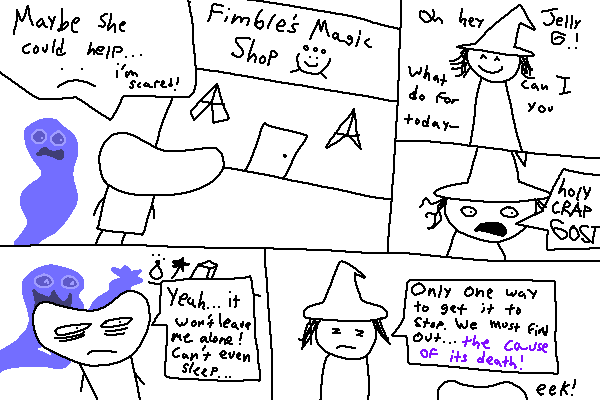 Maybe she
could help...
i'm
scared!
Fimble's Magic
Shop
Oh hey Jelly
B.!
What Can I
do for you
today—
holy
CRAP
GOST
Yeah... it
won't leave
me alone!
Can't even
sleep...
Only one way
to get it to
stop. We must find
out... the cause
of its death!
eek!